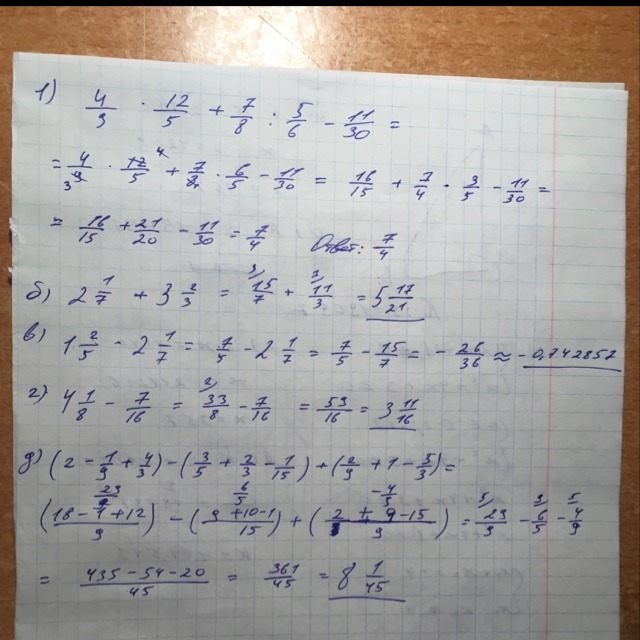 1) 4/9 · 12/5 + 7/8 : 5/6 - 11/30 =
= 4/9 3 · 12/5 4 + 7/8 · 6/5 - 11/30 = 16/15 + 7/4 · 3/5 - 11/30 =
= 16/15 + 21/20 - 11/30 = 7/4 Ответ: 7/4
б) 2 1/7 + 3 2/3 = 3/ 15/7 + 7/ 11/3 = 5 17/21
в) 1 2/5 - 2 1/7 = 7/5 - 2 1/7 = 7/5 - 15/7 = - 26/36 ≈ - 0,742857
г) 4 1/8 - 7/16 = 2/ 33/8 - 7/16 = 59/16 = 3 11/16
д) (2 - 1/9 + 4/3) - (3/5 + 2/3 - 1/15) + (2/9 + 1 - 5/3) =
29/9 6/5 -4/9
(18 - 1 + 12)/9 - (9 + 10 - 1)/15 + (2 + 9 - 15)/9 = 5/ 29/9 - 9/ 6/5 - 5 4/9
= 435 - 54 - 20/45 = 361/45 = 8 1/45